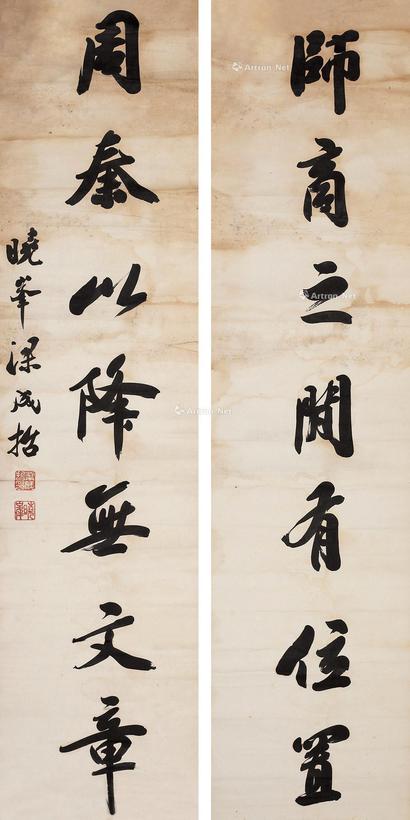 師商之間有位置
周秦以降無文章
曉峯梁成哲
Artron.Net
Artron.Net
Artron.Net